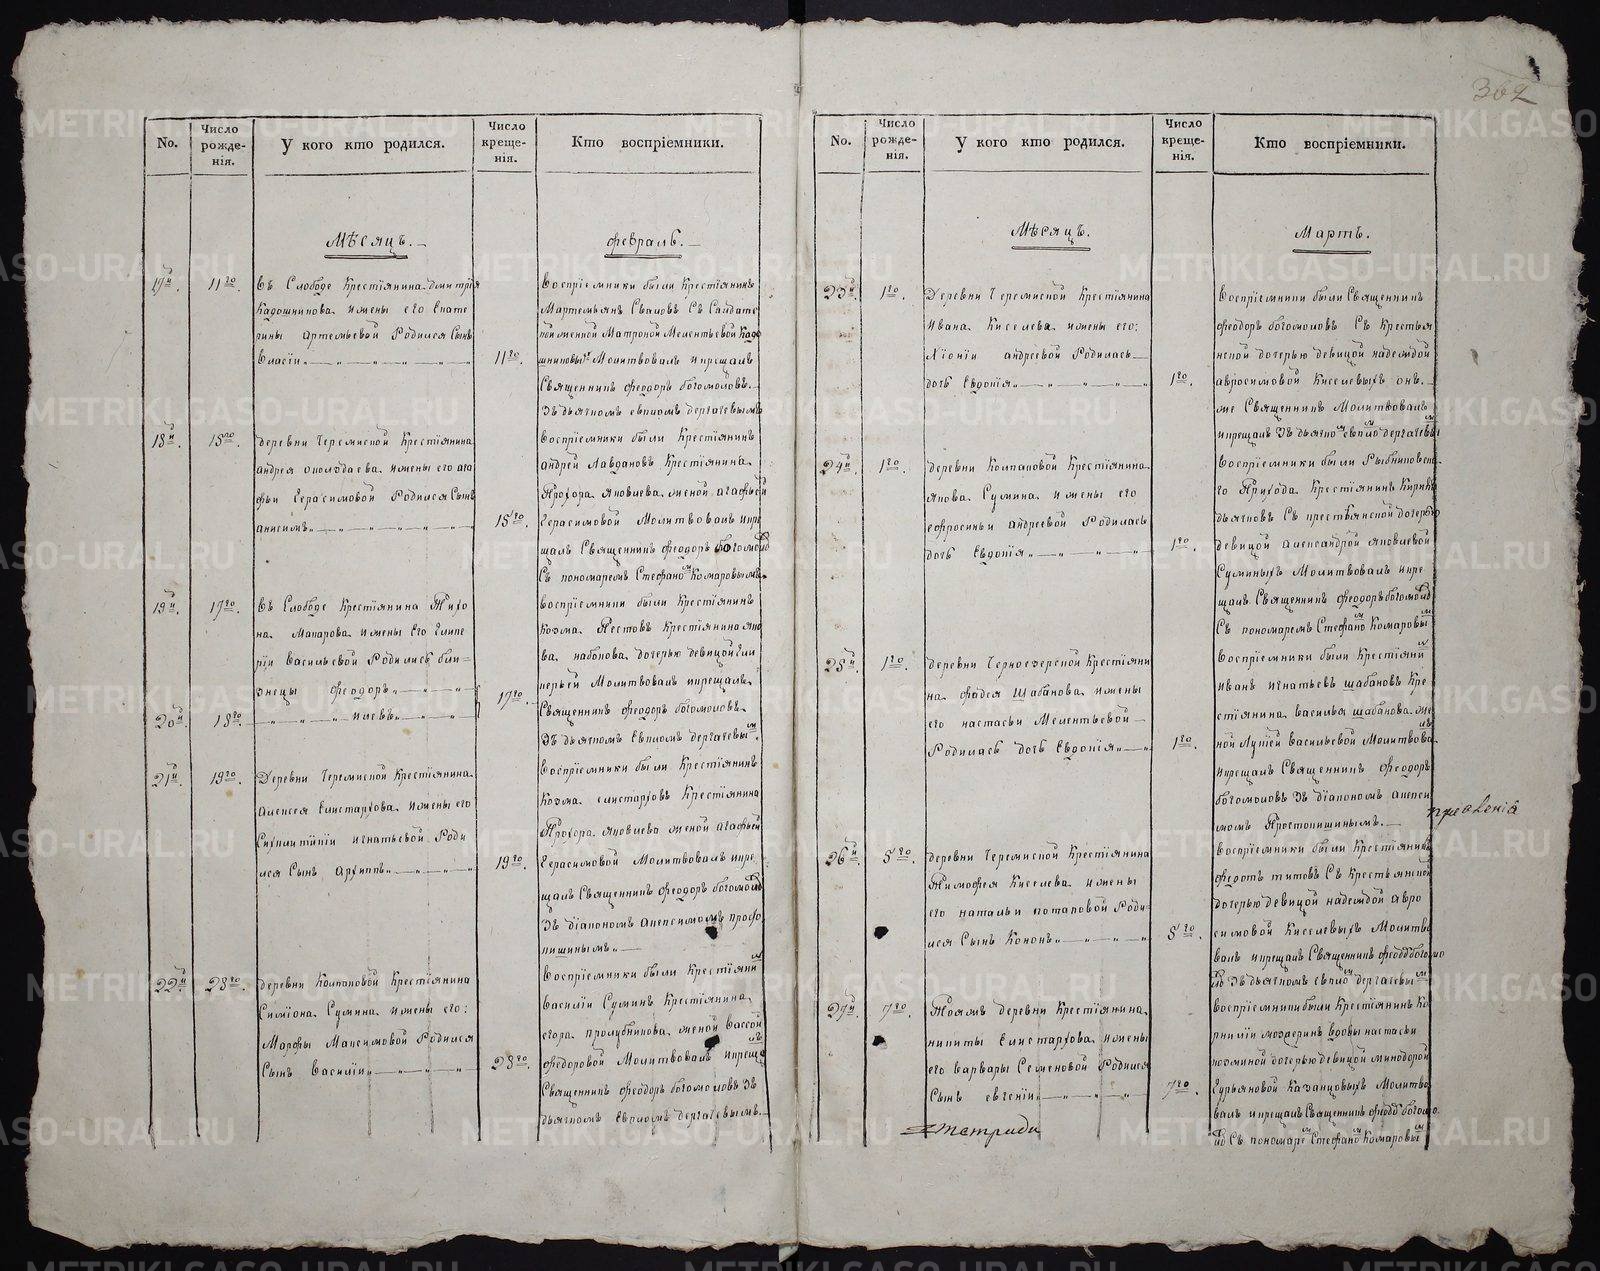 362
No.
Число рожде-нія.
У кого кто родился.
Число креще-нія.
Кто воспріемники.
Мѣсяцъ.
февраль.
17й. 11го.
Въ Слободе Крестіянина Дмитрія
Кадошникова и жены его Екате
рины Артемьевой Родился Сынъ
Власіи
11го.
Воспріемники были Крестіянинъ
Мартемьянъ
женой Матроной Мелентьевой Кадо
шниковы Молитвовалъ и крещалъ
Священникъ феодоръ богомоловъ.
Зъ дьячкомъ евпломъ дергачевымъ
18й. 15го.
деревни Черемиской Крестіянина
андрея и жены его ага
фьи Герасимовой Родился Сынъ
анисимъ
15го.
Воспріемники были Крестіянинъ
андрей Лавдановъ Крестіянина
Прохора яковлева женой агафьей
Герасимовой Молитвовалъ и кре
щалъ Священникъ феодоръ богомоловъ
Съ пономаремъ Стефаном Комаровымъ.
19й. 17го.
Въ Слободе Крестіянина Тихо
на Макарова и жены его Глике
ріи Васильевой Родились бли=
знецы феодоръ
20й. 18го.
и левъ
17го.
Воспріемники были Крестіянинъ
Козма Пестовъ Крестіянина яко
ва набокова дочерью девицой Гли
керьей Молитвовалъ и крещалъ
Священникъ феодоръ богомоловъ
Зъ дьячкомъ Евпломъ дергачевым.
21й. 19го.
Деревни Черемиской Крестіянина
Алексея Елистархова и жены его
игнатьевой Роди
лся Сынъ архиппъ
19го.
Воспріемники были Крестіянинъ
Козма елистарховъ Крестіянина
Прохора яковлева женой агафьей
Герасимовой Молитвовалъ и кре
щалъ Священникъ феодоръ богомоловъ
Зъ діакономъ алексимомъ просто
кишинымъ
22й. 28го.
деревни Колпаковой Крестіянина
Симіона Сумина и жены его:
Марфы Максимовой Родился
Сынъ Василіи
28го.
Воспріемники были Крестіянин
Василіи Суминъ Крестіянина
егора пролубникова женой Вассой
феодоровой Молитвовалъ и креща
Священникъ феодоръ богомоловъ Зъ
дьячкомъ Евпломъ дергачевымъ.
No.
Число рожде-нія.
У кого кто родился.
Число креще-нія.
Кто воспріемники.
Мѣсяцъ.
Мартъ.
23й. 1го.
Деревни Черемиской Крестіянина
Ивана Киселева и жены его:
Хіоніи андреевой Родилась
дочь Евдокія
1го.
Воспріемники были Священникъ
феодоръ богомоловъ Съ Крестья
нской дочерью девицой надеждой
авросимовой Киселевыхъ онъ
же Священникъ Молитвовалъ
и крещалъ Зъ дьячком евплом дергачевы
24й. 1го.
деревни Колпаковой Крестіянина
якова Сумина и жены его
ефросиньи андреевой Родилась
дочь Евдокія
1го.
Воспріемники были Рыбниковска
го Прихода Крестіянинъ Кирикъ
дьячковъ Съ крестьянской дочерью
девицой александрой яковлевой
Суминыхъ Молитвовалъ и кре
щалъ Священникъ феодоръ богомолов
Съ пономаремъ Стефаном Комаровы
25й. 1го.
деревни Черноозерской Крестіяни
на фадея Шабанова и жены
его настасьи Мелентьевой
Родилась дочь Евдокія
1го.
Воспріемники были Крестіянин
Иванъ игнатьевъ шабановъ Кре
стіянина Василья шабанова же
ной Лукіей Васильевой Молитвова
и крещалъ Священникъ феодоръ
богомоловъ Зъ діакономъ алекси
момъ Простокишинымъ.
26й. 5го.
деревни Черемиской Крестіянина
Тимофея Киселева и жены
его натальи потаповой Роди
лся Сынъ Кононъ
5го.
Воспріемники были Крестіянинъ
федотъ титовъ Съ Крестьянской
дочерью девицой надеждой авро
симовой Киселевыхъ Молитво
валъ и крещалъ Священникъ феодоръ богомо
лов Зъ дьячкомъ евплом дергачевы
27й. 7го.
Тояжъ деревни Крестіянина
никиты Елистархова и жены
его варвары Семеновой Родился
Сынъ евгеніи
7го.
Воспріемники были Крестіянинъ Ко
рниліи вдовы настасьи
козминой дочерью девицой минодорой
Гурьяновой Казанцовыхъ Молитво
валъ и крещалъ Священникъ феодоръ богомо
лов Съ пономарем Стефаном Комаровы
тетради
METRIKI.GASO-URAL.RU